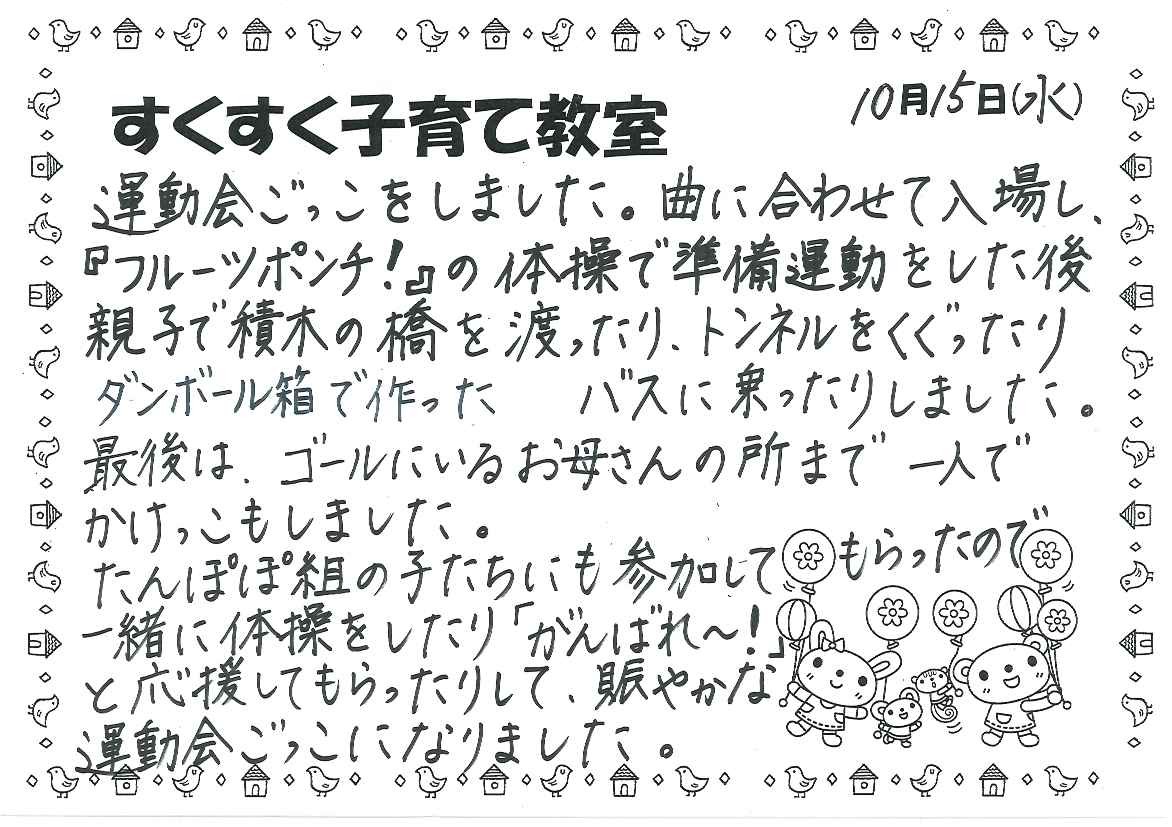 すくすく子育て教室
10月15日(水)
運動会ごっこをしました。曲に合わせて入場し、
『フルーツポンチ!』の体操で準備運動をした後
親子で積木の橋を渡ったり、トンネルをくぐったり
ダンボール箱で作った バスに乗ったりしました。
最後は、ゴールにいるお母さんの所まで 一人で
かけっこもしました。
たんぽぽ組の子たちにも参加して もらったので
一緒に体操をしたり「がんばれ〜!」
と応援してもらったりして、賑やかな
運動会ごっこになりました。